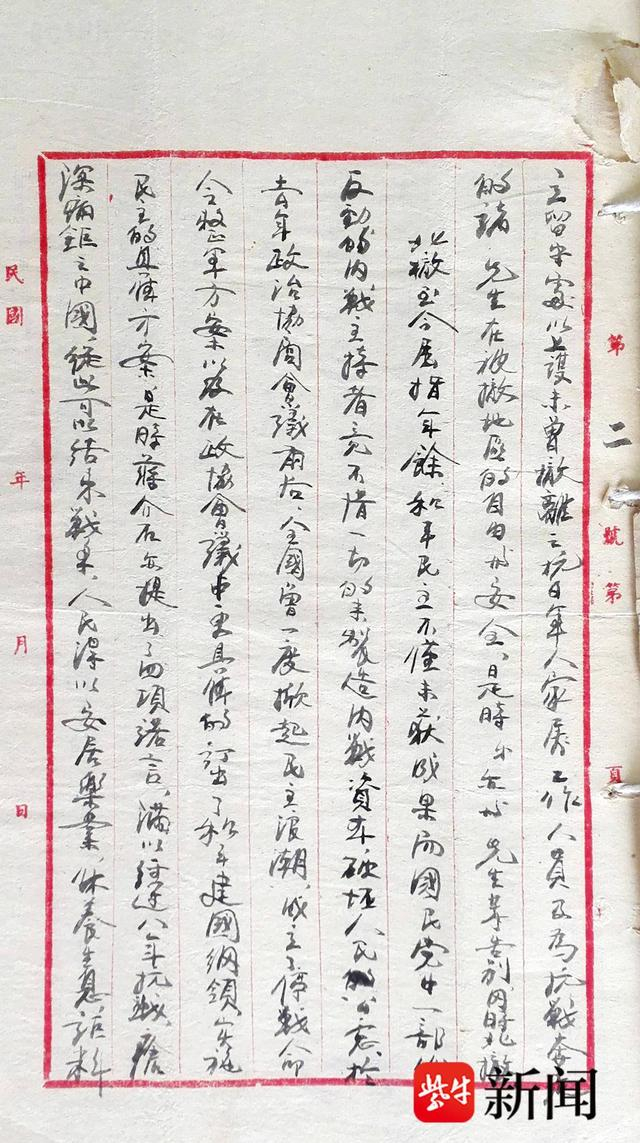 立留守處以上護未曾撤離之抗日軍人家屬工作人員及為抗戰奉
的諸先生在被撤地區的自由與安全，是時 亦與先生等告別，同時北撤
北撤至今屈指年餘，和平民主不僅未獲成果，而國民党中一部份
反動的內戰主持者竟不惜一切的來製造內戰資本，破坏人民的 於
去年政治協商會議前后，全國曾一度掀起民主浪潮，成立了停戰命
令整軍方案以及在政協會議中更具体的訂出了和平建國綱領，实施
民主的具体方案，是時蔣介石亦提出了四項諾言，滿以經過八年抗戰，瘡
深痛鉅之中國，從此可以結束戰事，人民得以安居樂業，休養生息，詎料
第二號第 頁
民國 年 月 日
紫牛新闻